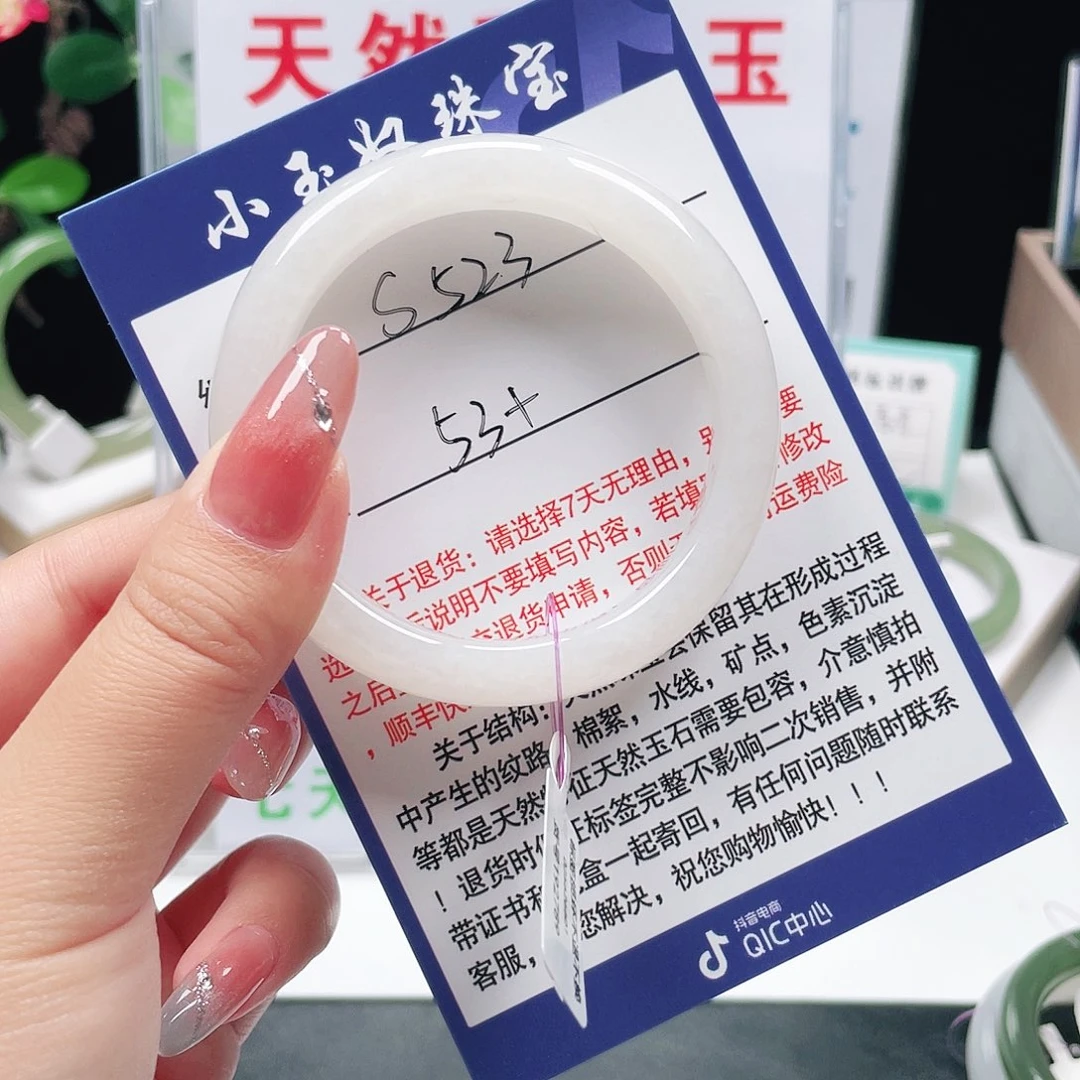 天然 玉
小玉 珠宝
S 523
53+
关于退货：请选择7天无理由， 要
说明不要填写内容，若填 修改
退货申请，否则 运费险
之后
，顺丰快
关于结构： 保留其在形成过程
中产生的纹路 棉絮，水线，矿点，色素沉淀
等都是天然 征天然玉石需要包容，介意慎拍
！退货时 标签完整不影响二次销售，并附
带证书 盒一起寄回，有任何问题随时联系
客服， 您解决，祝您购物愉快！！！
抖音电商
QIC中心
七天